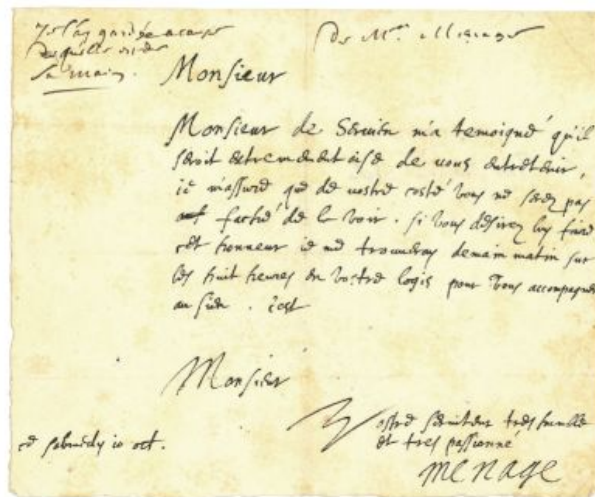 Je l'ay gardée a cause
qu'elle est de
sa main.
De Mr. Menage
Monsieur
Monsieur de Servien m'a temoigné qu'il
seroit extremement aise de vous entretenir,
ie m'assure que de vostre costé vous ne serez pas
faché de le voir. si vous desirez luy faire
cet honneur ie me trouveray demain matin sur
les huit heures en vostre logis pour vous accompagner
au sien. c'est
Monsieur
Vostre serviteur tres humble
et tres passionné
MENAGE
ce sabmedy 10 oct.